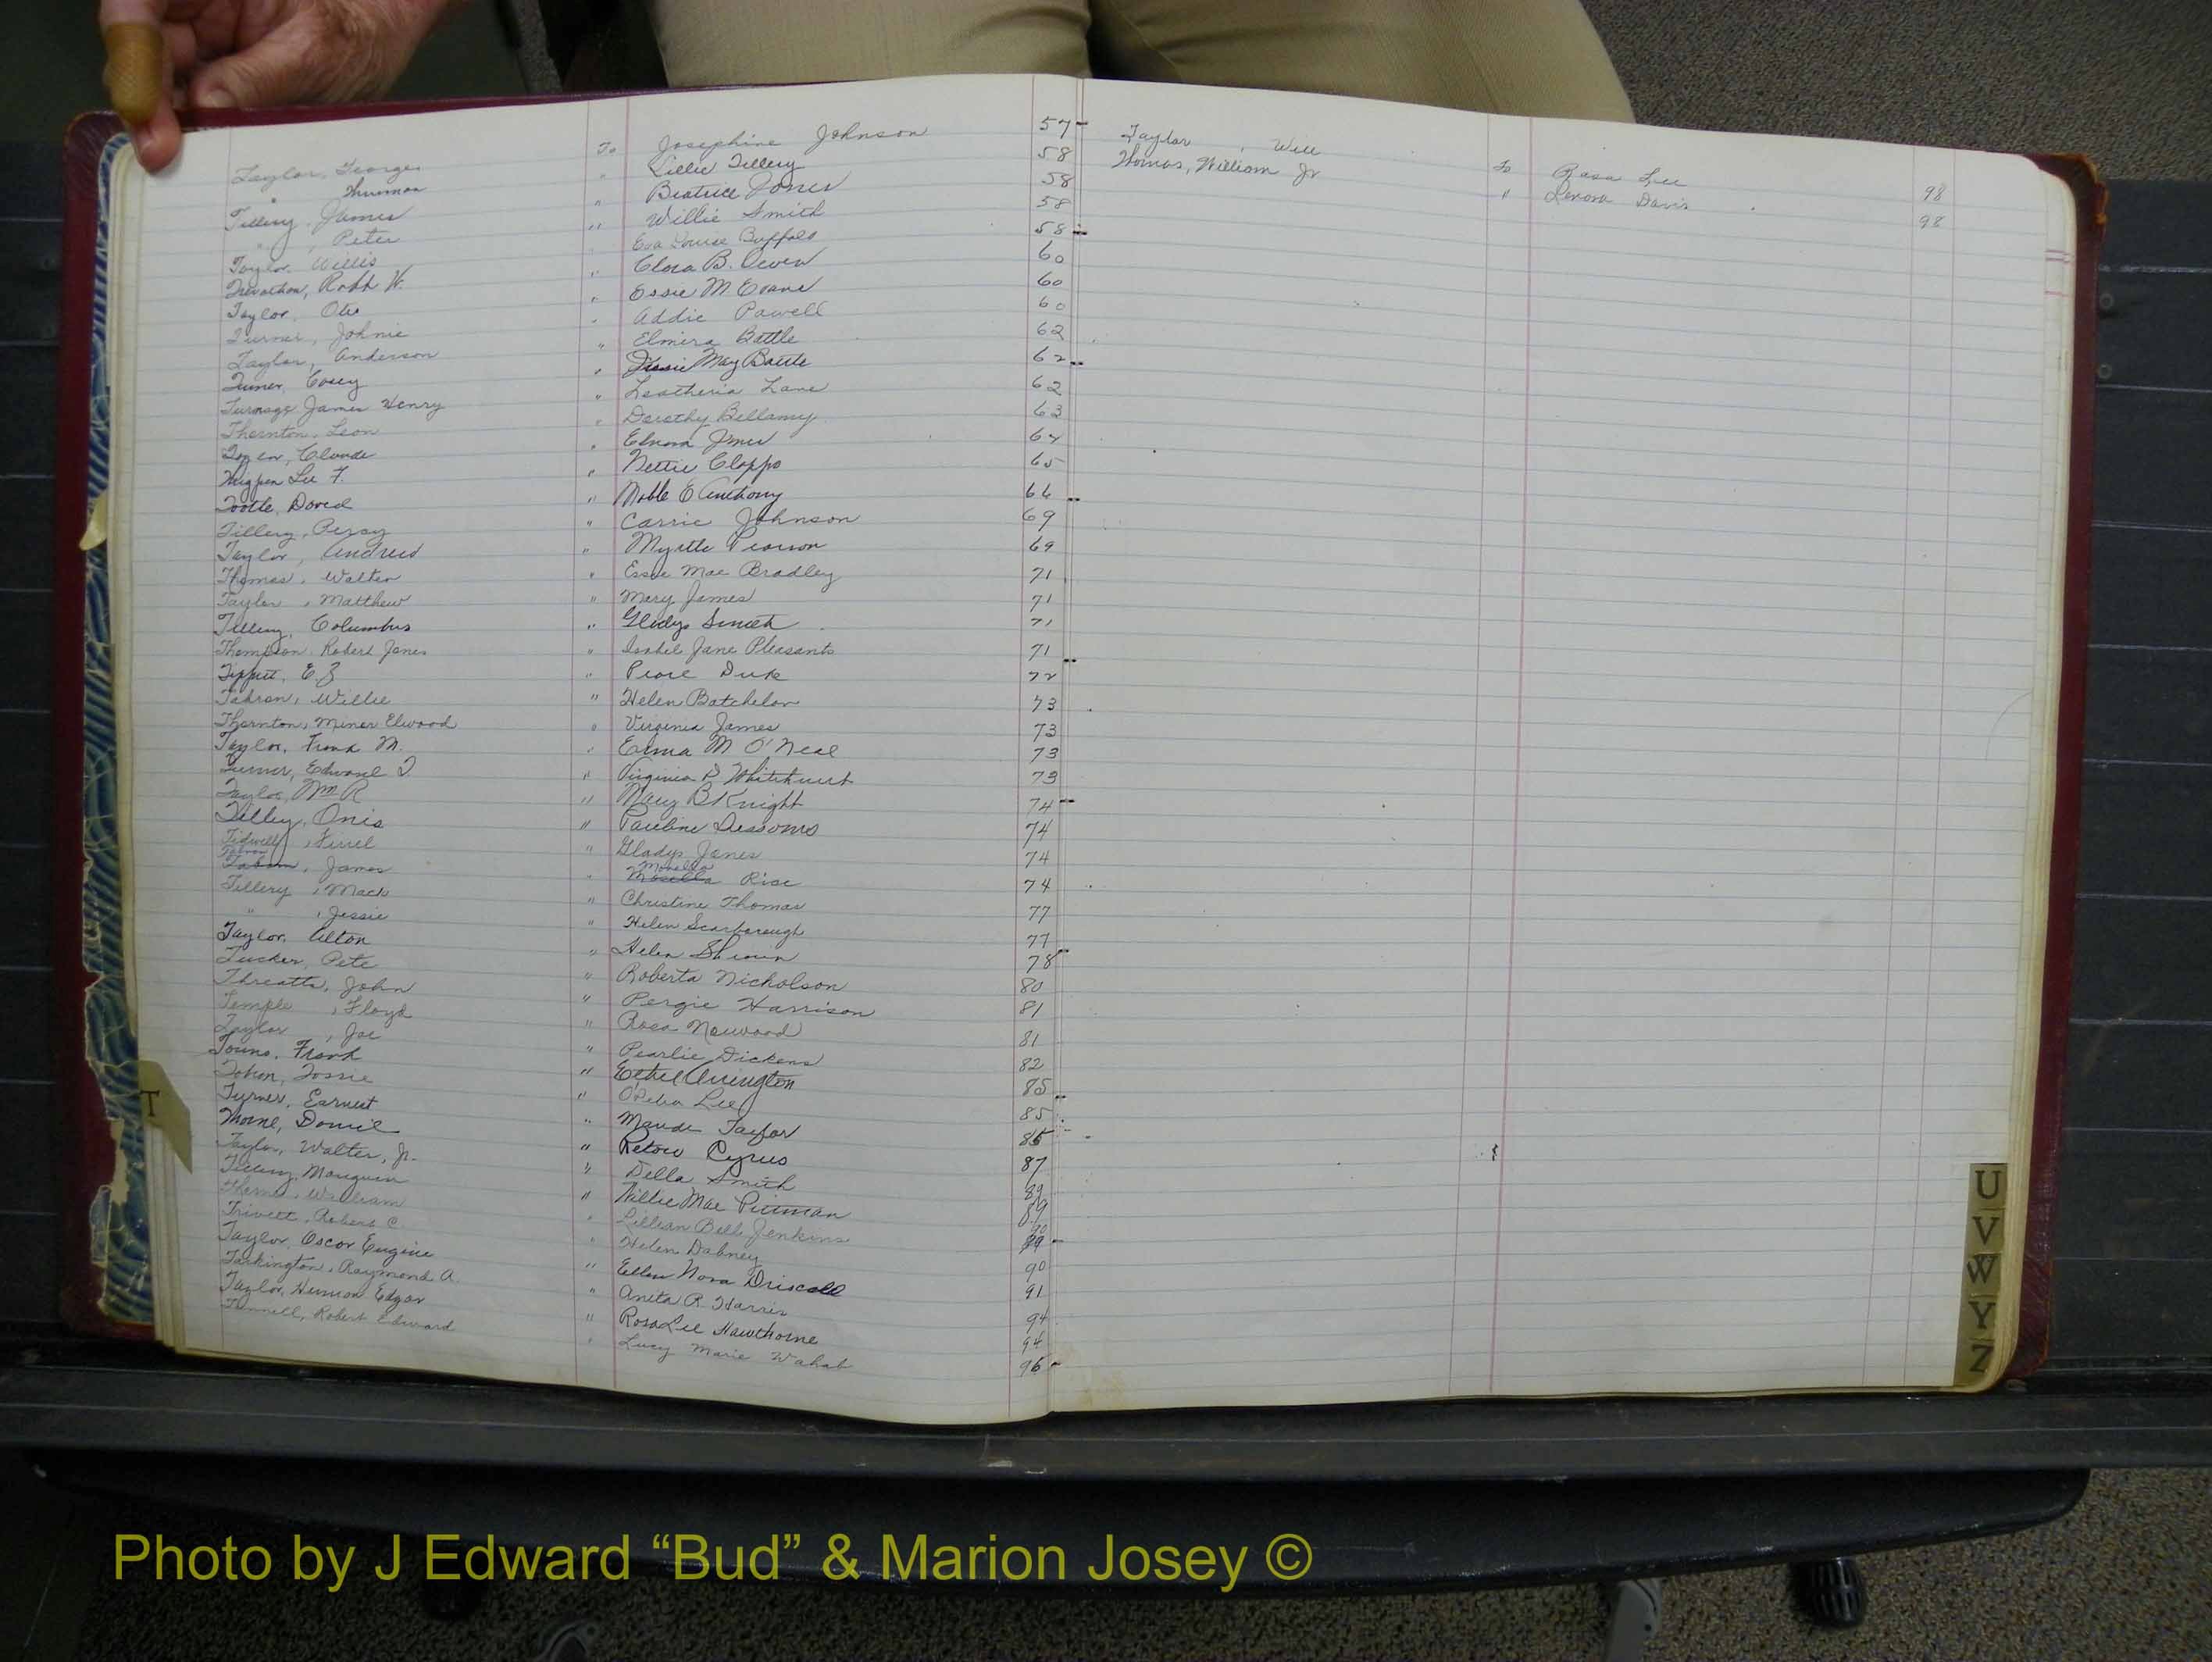 Taylor, George To Josephine Johnson 57
" Thurman " Lillie Tillery 58
Tillery, James " Beatrice Jones 58
" , Peter " Willie Smith 58
Taylor, Willis Eva Louise Buffalo 58
Trevathan, Robt W. " Clora B. Deven 60
Taylor, Otis " Essie M Evans 60
Turner, Johnie " Addie Powell 60
Taylor, Anderson " Elmira Battle 62
Turner, Casey " May Battle 62
Turnage James Henry " Leatheria Lane 62
Thornton, Leon " Dorothy Bellamy 63
Claude " Elnora Jones 64
Thigpen Lee F. " Nettie Clapps 65
Tootle, David " Mable E Anthony 66
Tillery, Percy " Carrie Johnson 69
Taylor, Andrew " Myrtle Pearson 69
Thomas, Walter " Essie Mae Bradley 71
Taylor, Matthew " Mary James 71
Tillery, Columbus " Gladys Smith 71
Thompson Robert Jones " Isabel Jane Pleasants 71
Tippett, E.Z " Duke 72
Tabron, Willie " Helen Batchelor 73
Thornton, Miner Elwood " Virginia James 73
Taylor, Frank M. " Erma M O'Neal 73
Turner, Edward T " Virginia D Whitehurst 73
Taylor, Wm R " Mary B Knight 74
Tilley, Onis " Pauline Sessoms 74
Tidwell, " Gladys Jones 74
Tabron, James " Mozella Rice 74
Tillery, Mack " Christine Thomas 77
" , Jessie " Helen Scarborough 77
Taylor, Alton " Helen 78
Tucker, Pete " Roberta Nicholson 80
Threatts, John " Pergie Harrison 81
Temple, Floyd " Rosa Norwood 81
Taylor, Joe " Pearlie Dickens 82
Frank " Ethel Arrington 85
Tossie " O'Delia Lee 85
Turner, Earnest " Maude Taylor 85
Thorne, " Cyrus 87
Taylor, Walter, Jr. " Della Smith 89
Tillery, " Willie Mae Pittman 89
William " Lillian Bell Jenkins 90
Trivett, Robert C. " Helen Dabney
Taylor, Oscar Eugene " Ellen Nora Driscoll 90
Tarkington, Raymond A. " Anita R Harris 91
Taylor, Hermon Edgar " Rosa Lee Hawthorne 94
Tunnell, Robert Edward " Lucy Marie Wahab 94
96
Taylor, Will To Rosa Lee 98
Thomas, William Jr " Lenora Davis 98
T
U
V
W
Y
Z
Photo by J Edward “Bud” & Marion Josey ©